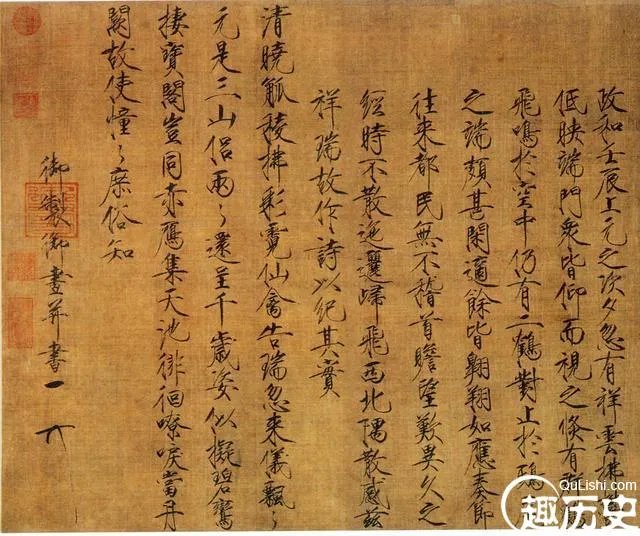 政和壬辰上元之次夕忽有祥雲拂
低映端門衆皆仰而視之倏有群鶴
飛鳴於空中仍有二鶴對止於鴟
之端頗甚閑適餘皆翺翔如應奏節
往來都民無不稽首瞻望歎異久之
經時不散迤邐歸飛西北隅散感茲
祥瑞故作詩以紀其實
清曉觚稜拂彩霓仙禽告瑞忽來儀飄〻
元是三山侶兩〻還呈千歲姿似擬碧鸞
棲寶閣豈同赤鴈集天池徘徊嘹唳當丹
闕故使憧〻庶俗知
御製御畫并書
QuLishi.com
趣历史